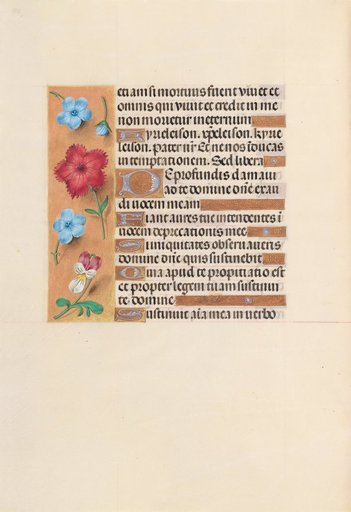 etiam si mortuus fuerit vivet et
omnis qui vivit et credit in me
non morietur in eternum
Kyrieleison. xpeleison. kyrie
leison. pater nr̄ Et ne nos īducas
in temptationem. Sed libera
De profundis clamavi
ad te domine dn̄e exau
di vocem meam
Fiant aures tue intendentes ī
vocem deprecationis mee
Si iniquitates observaveris
domine dn̄e quis sustinebit
Quia apud te propitiatio est
et propter legem tuam sustinui
te domine
Sustinuit aīa mea in verbo